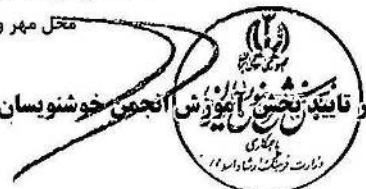 محل مهر و
و تایید بخش آموزش انجمن خوشنویسان
باهمکاری
وزارت فرهنگ و ارشاد اسلامی